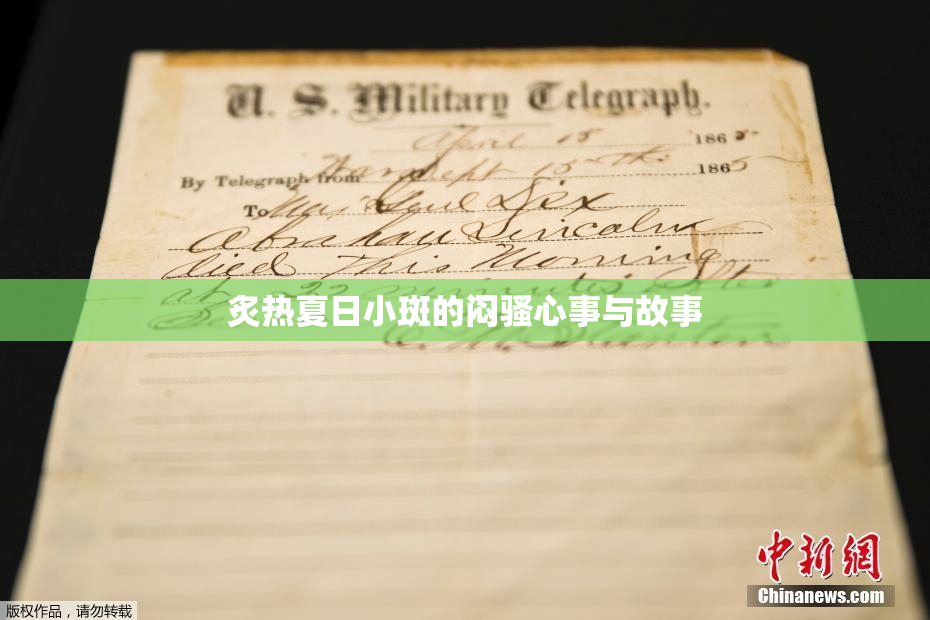 U. S. Military Telegraph.
April 15 1865
By Telegraph from War Dept 15th 1865
To Maj Genl Dix
Abraham Lincoln
died This Morning
at 22 minutes after
炙热夏日小斑的闷骚心事与故事
中新网
Chinanews.com
版权作品，请勿转载